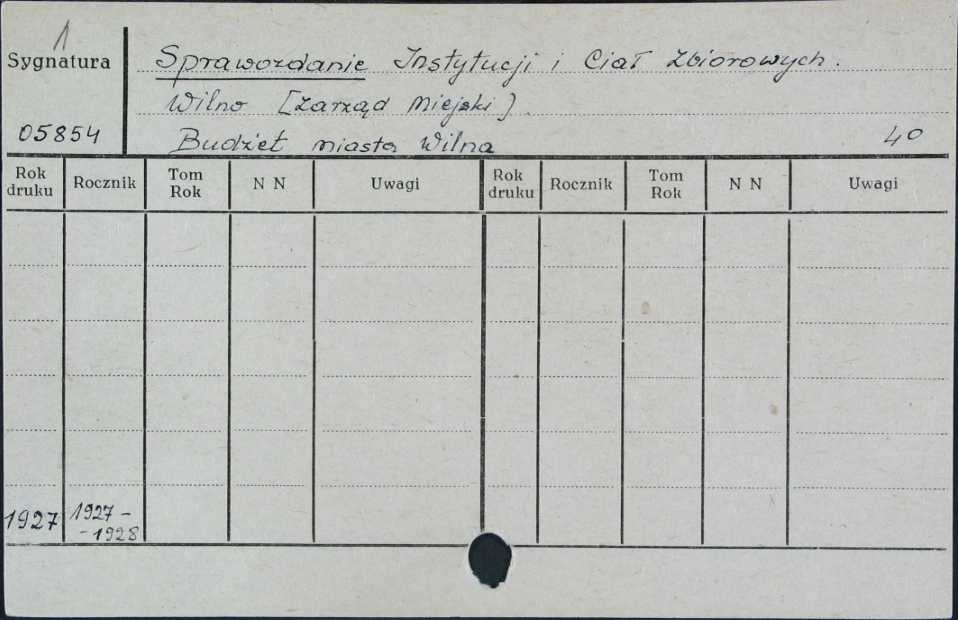 1
Sygnatura
05854
Sprawozdanie Instytucji i Ciał Zbiorowych.
Wilno [Zarząd Miejski].
Budżet miasta Wilna 40
Rok druku Rocznik Tom Rok N N Uwagi Rok druku Rocznik Tom Rok N N Uwagi
1927 1927 -
- 1928